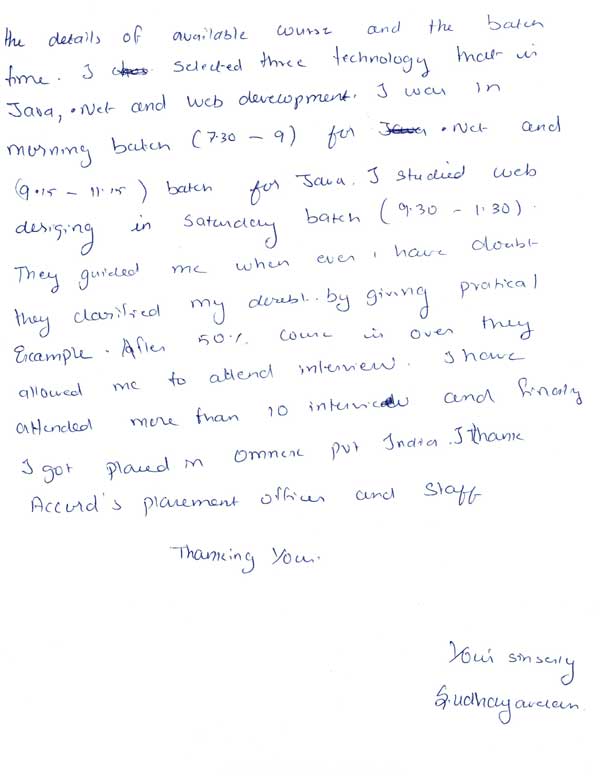 the details of available course and the batch
time. I selected three technology that is
Java, .Net and web development. I was in
morning batch (7.30 - 9) for .Net and
(9.15 - 11.15) batch for Java. I studied web
desiging in Saturday batch (9.30 - 1.30).
They guided me when ever i have doubt
they clarified my doubt.. by giving pratical
Example. After 50% course is over they
allowed me to attend interview. I have
attended more than 10 interview and finally
I got placed in pvt India. I thank
Accord's placement officer and staff
Thanking You.
Your sinserly